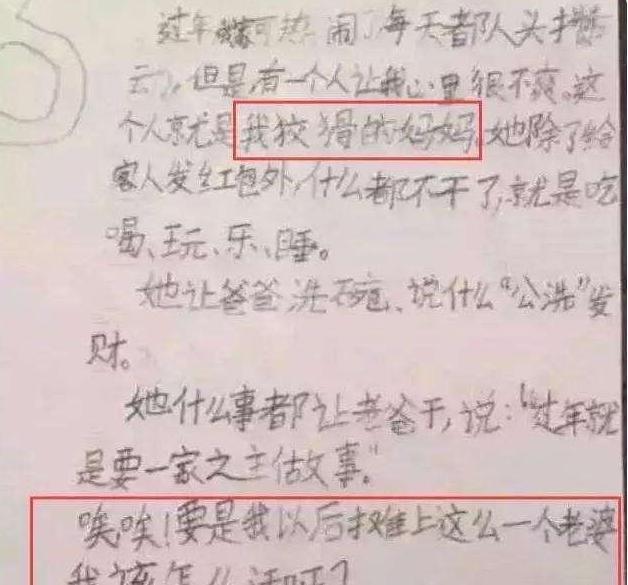 过年家可热闹了每天都队头扌
云了,但是,有一个人让我心里很不爽。这
个人就是我狡猾的妈妈,她除了给
客人发红包外,什么都不干了,就是吃
喝、玩、乐、睡。
她让爸爸洗碗、说什么“公洗”发
财。
她什么事都让老爸干,说:“过年就
是要一家之主估故事。”
唉,唉!要是我以后摊上这么一个老婆
我该怎么活呀?